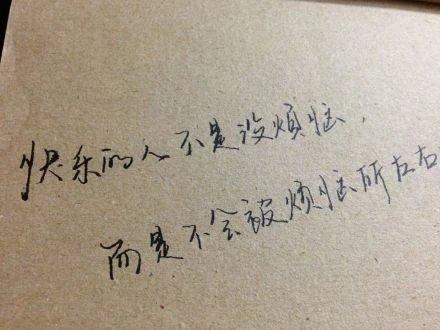 快乐的人不是没烦恼，
而是不会被烦恼所左右